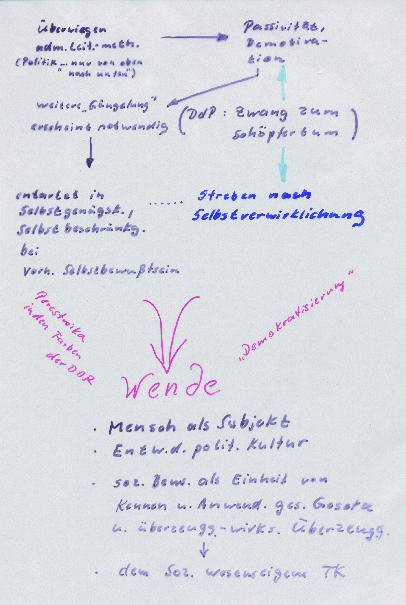 Überwiegen
adm. Leit.-meth.
(Politik... nur von oben
"nach unten")
Passivität,
Demotiva-
tion
weitere „Gängelung"
erscheint notwendig
(DdP: Zwang zum
Schöpfertum)
entartet in
Selbstgenügs.,
Selbstbeschränkg.
bei
vorh. Selbstbewußtsein
........
Streben nach
Selbstverwirklichung
Perestroika
in den Farben
der DDR
„Demokratisierung"
Wende
· Mensch als Subjekt
· Entw. d. polit. Kultur
· soz. Bew. als Einheit von
Kennen u. Anwend. ges. Gesetze
u. überzeugg.-wirks. Überzeugg.
· dem Soz. wesenseigene TK